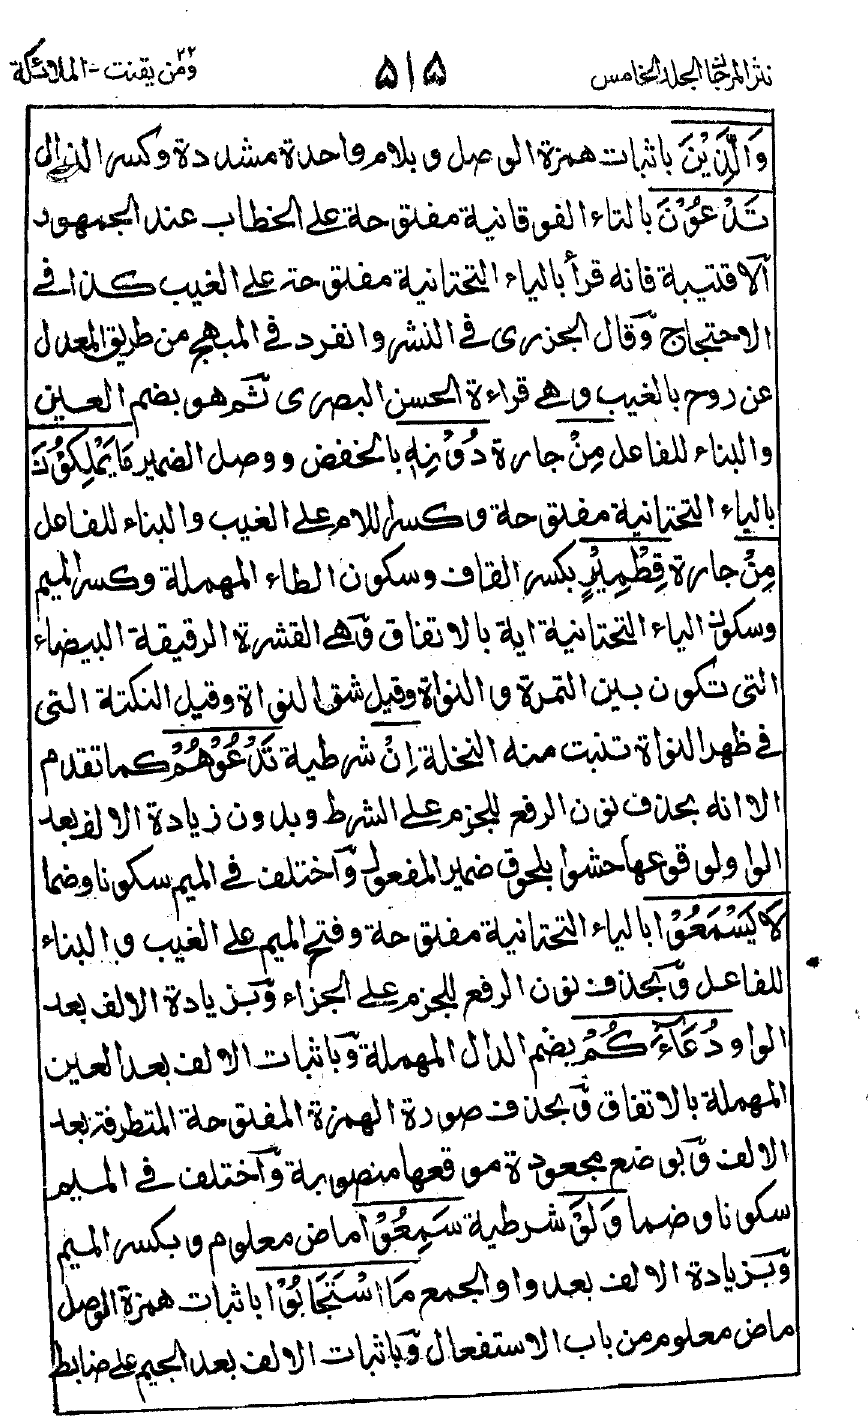 نثر المرجان المجلد الخامس
٥١٥
ومن يقنت ٢٢ - الملائكة
وَالَّذِيْنَ باثبات همزة الوصل وبلام واحدة مشددة وكسر الذال
تَدْعُوْنَ بالتاء الفوقانية مفتوحة على الخطاب عند الجمهور
الا قتيبة فانه قرأ بالياء التحتانية مفتوحة على الغيب كذا في
الاحتجاج وقال الجزرى في النشر وانفرد في المبهج من طريق المعدل
عن روح بالغيب وهي قراءة الحسن البصرى ثم هو بضم العين
والبناء للفاعل مِنْ جارة دُوْنِهٖ بالخفض ووصل الضمير مَا يَمْلِكُوْنَ
بالياء التحتانية مفتوحة وكسر اللام على الغيب والبناء للفاعل
مِنْ جارة قِطْمِيْرٍ بكسر القاف وسكون الطاء المهملة وكسر الميم
وسكون الياء التحتانية اية بالاتفاق وهي القشرة الرقيقة البيضاء
التى تكون بين التمرة والنواة وقيل شق النواة وقيل النكتة التى
في ظهر النواة تنبت منه النخلة اِنْ شرطية تَدْعُوْهُمْ كما تقدم
الا انه بحذف نون الرفع للجزم على الشرط وبدون زيادة الالف بعد
الواو لوقوعها حشوا بلحوق ضمير المفعول واختلف في الميم سكونا وضما
لَا يَسْمَعُوْا بالياء التحتانية مفتوحة وفتح الميم على الغيب والبناء
للفاعل وبحذف نون الرفع للجزم على الجزاء وبزيادة الالف بعد
الواو دُعَآءَكُمْ بضم الدال المهملة وباثبات الالف بعد العين
المهملة بالاتفاق وبحذف صورة الهمزة المفتوحة المتطرفة بعد
الالف وبوضع مجعودة موقعها منصوبة واختلف في الميم
سكونا وضما وَلَوْ شرطية سَمِعُوْا ماض معلوم وبكسر الميم
وبزيادة الالف بعد واو الجمع مَا اسْتَجَابُوْا باثبات همزة الوصل
ماض معلوم من باب الاستفعال وباثبات الالف بعد الجيم على ضابطة